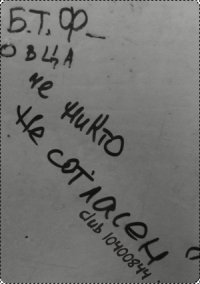 Б.Т.Ф_
ОВЦА
не никто
Не согласен
club 10400844